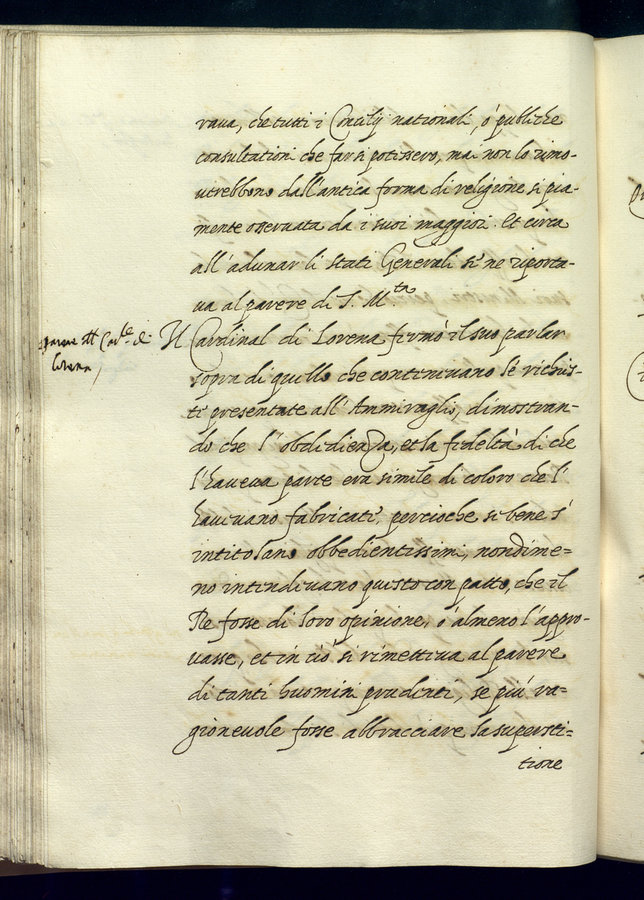 raua, che tutti i Concilij nationali, ò publiche
consultationi che far si potessero, mai non lo rimo-
uerebbono dall'antica forma di religione si pia-
mente osseruata da i suoi maggiori. Et circa
all'adunar li Stati Generali se ne riporta-
ua al parere di S. M.ta
parere del Car.le di
Lorena
Il Cardinal di Lorena fermò il suo parlar
sopra di quello che conteneuano le richies-
ti presentate all'Ammiraglio, dimostran-
do che l'obedienza, et la fideltà di che
l'haueua parte era simile di coloro che l'
haueuano fabricate, percioche se bene s'
intitolano obbedientissimi, nondime=
no intendeuano questo con patto, che il
Re fosse di loro opinione, ò almeno l'appro-
uasse, et in ciò si rimetteua al parere
di tanti huomini prudenti, se più ra=
gioneuole fosse abbracciare la supersti=
tione